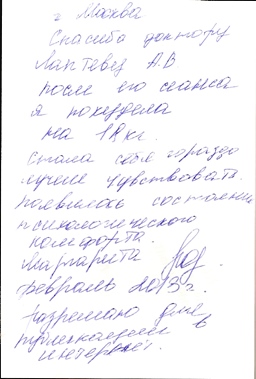 г Москва
Спасибо доктору
Лаптеву А.В
после его сеанса
я похудела
на 18 кг.
Стала себя гораздо
лучше чувствовать.
появилось состояние
психологического
комфорта.
Маргарита
февраль 2013г.
Разрешаю для
публикации в
интернет.